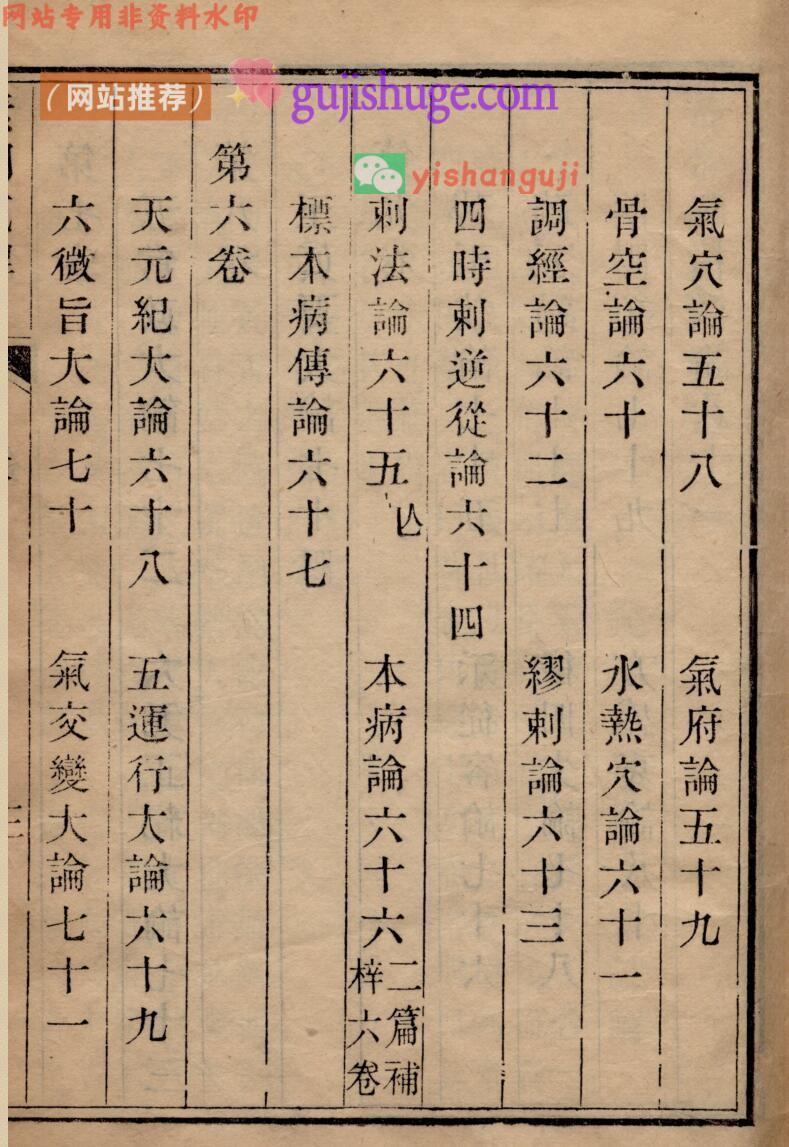 网站专用非资料水印
(网站推荐)
gujishuge.com
yishanguji
氣穴論五十八 氣府論五十九
骨空論六十 水熱穴論六十一
調經論六十二 繆刺論六十三
四時刺逆從論六十四
刺法論六十五亾 本病論六十六二篇補梓六卷
標本病傳論六十七
第六卷
天元紀大論六十八 五運行大論六十九
六微旨大論七十 氣交變大論七十一
三